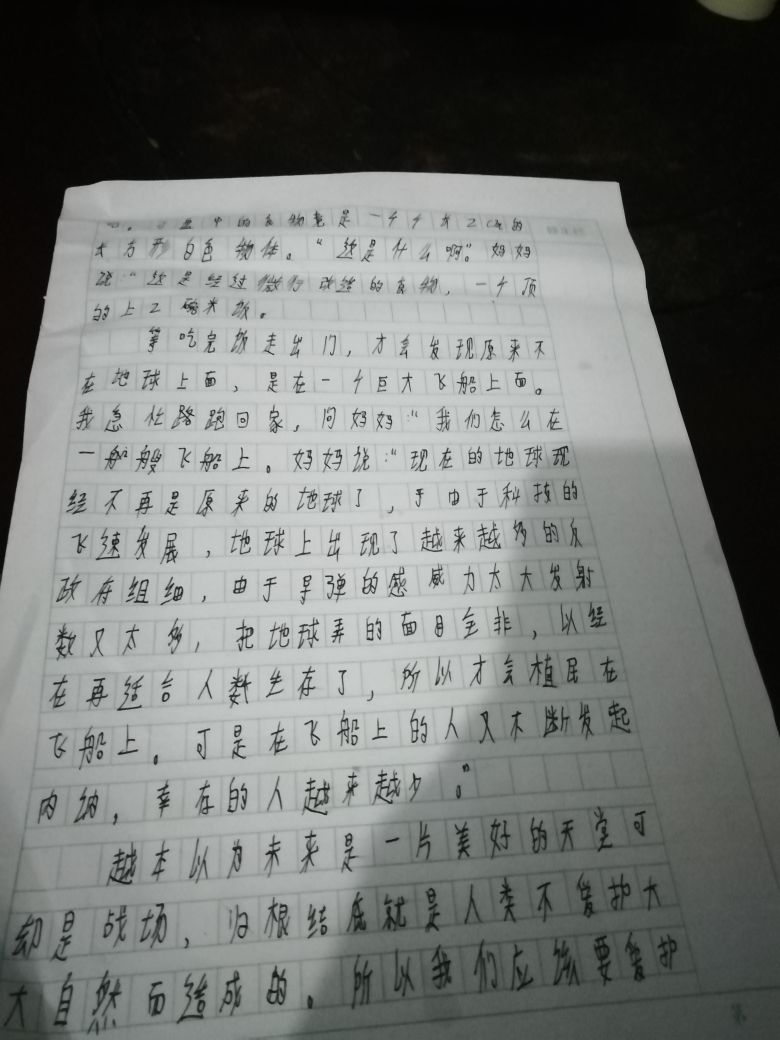 中的食物竟是一个个大2cm的
大方形白色物体。“这是什么啊”。妈妈
说“这是经过微波改造的食物，一个顶
的上2碗米饭。
等吃完饭走出门，才会发现原来不
在地球上面、是在一个巨大飞船上面。
我急忙路跑回家，问妈妈：“我们怎么在
一船艘飞船上。妈妈说：“现在的地球现
经不再是原来的地球了，于由于科技的
飞速发展，地球上出现了越来越多的反
政存组细，由于导弹的感威力太大发射
数又太多，把地球弄的面目全非，以经
在再适合人数生存了，所以才会植民在
飞船上。可是在飞船上的人又不断发起
内纳，幸存的人越来越少。”
越本以为未来是一片美好的天堂可
却是战场，归根结底就是人类不爱护大
大自然而造成的。所以我们应该要爱护
第